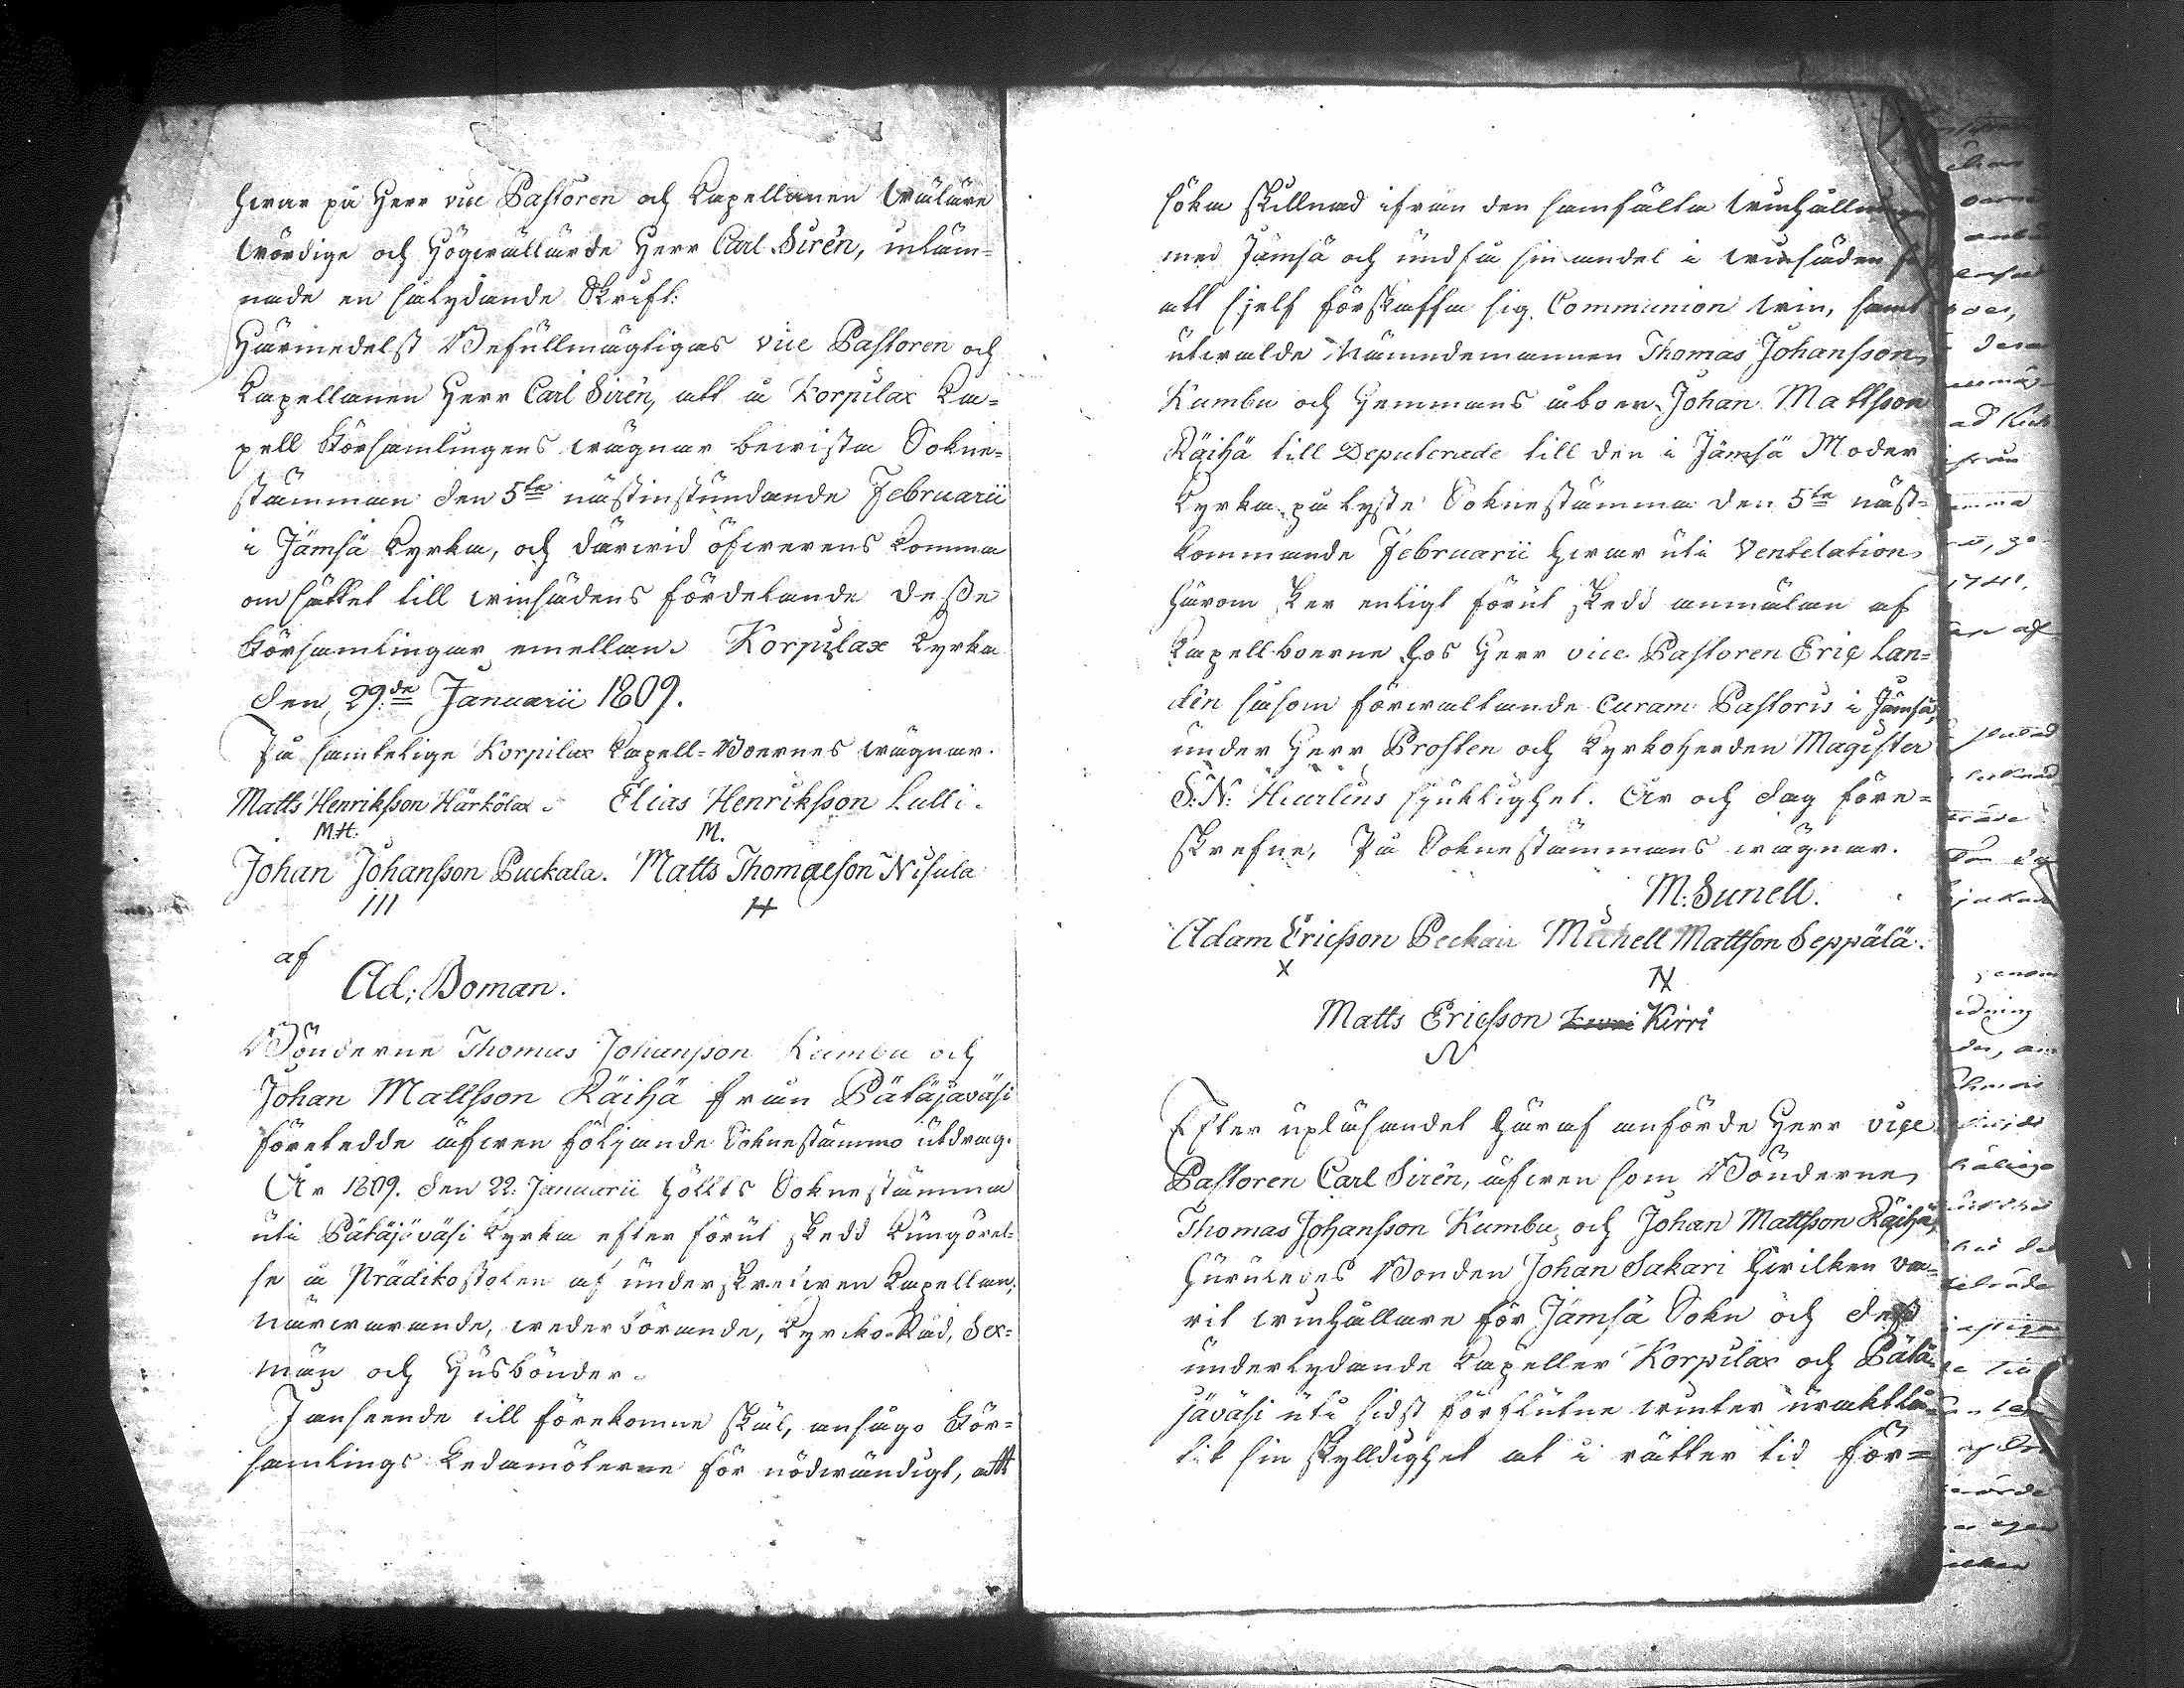 hwar på Herr vice Pastoren och Capellanen Wäläre
Wördige och Högwällärde Herr Carl Sirén, inläm-
nade en sålydande Skrift:
Härmedelst Befullmägtigas vice Pastoren och
Capellanen Herr Carl Sirén, att å Korpilax Ca-
pell Församlingens wägnar bewista Sokne-
stämman den 5te nästinstundande Februarii
i Jämsä Kyrka, och därwid öfwerens komma
om sättet till winsädens fördelande desse
Församlingar emellan. Korpilax Kyrka
den 29:de Januarii 1809.
På samtelige Korpilax Capell-Boernes wägnar.
Matts Henriksson Härkölax. Elias Henriksson Lulli.
M.H. M.
Johan Johansson Puckala. Matts Thomaeson Nisula
III H
af
Ad: Boman.
Bönderne Thomas Johansson Kumbu och
Johan Mattsson Räihä från Pätäjäväsi
företedde äfwen följande Soknestämmo utdrag.
År 1809. den 22: Januarii höllts Soknestämma
uti Pätäjäväsi Kyrka efter förut skedd kungörel-
se å Prädikostolen af underskrefwen Capellan,
närwarande, wederbörande, Kyrcko-Råd, Sex-
män och Husbönder.
I anseende till förekomne skäl, ansågo För-
samlings Ledamöterne för nödwändigt, att
söka skillnad ifrån den samfälta winhållningen
med Jämsä och undfå sin andel i winsäden
att sjelf förskaffa sig Communion win, samt
utwalde Nämndemannen Thomas Johansson
Kumbu och Hemmans åboen Johan Mattsson
Räihä till Deputerade till den i Jämsä Moder
Kyrka pålyste Soknestämma den 5te näst-
kommande Februarii hwar uti Ventelation
härom sker enligt förut skedd anmälan af
Capellboerne hos Herr vice Pastoren Eric Lan-
dén såsom förwaltande Curam Pastoris i Jämsä,
under Herr Prosten och Kyrkoherden Magister
S: N: Hearlins sjuklighet. År och dag före-
skrefne, På Soknestämmans wägnar.
M: Sunell.
Adam Ericsson Peckari Michell Mattson Seppälä.
X N
Matts Ericsson Kirri
N
Efter upläsandet häraf anförde Herr vice
Pastoren Carl Sirén, äfwen som Bönderne
Thomas Johansson Kumbu och Johan Mattsson Räihä,
huruledes Bonden Johan Sakari hwilken va-
rit winhållare för Jämsä Sokn och dess
underlydande Capeller Korpilax och Pätä-
jäväsi uti sidst förflutne winter uraktlå-
tit sin skylldighet at i rätter tid för-